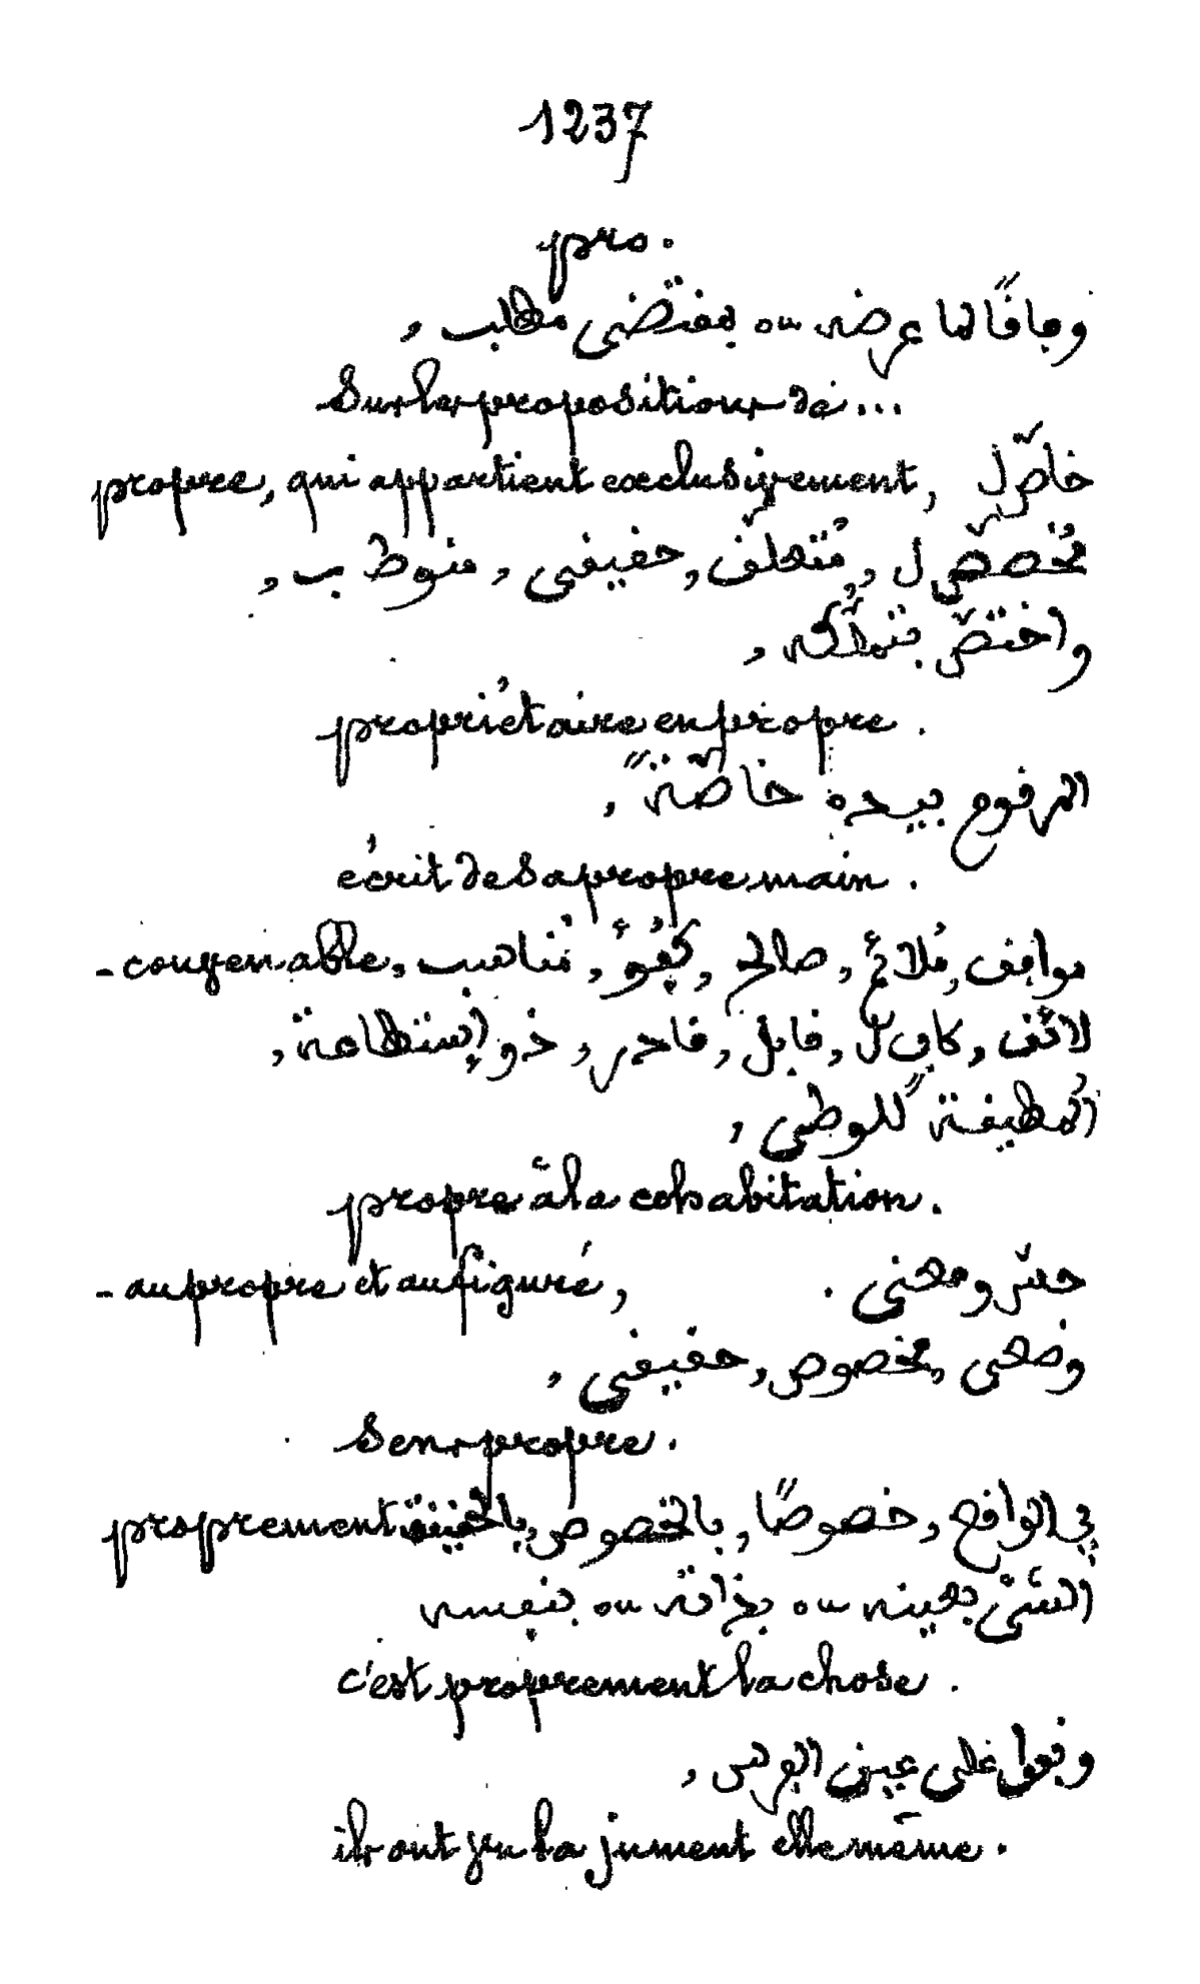 1237
pro.
وفاقًا لما عرضه ou بمقتضى مطلب ,
Sur les propositions de...
propre, qui appartient exclusivement, خاصّ ل
مُخصّص ل , مُتعلّق , حقيقي , منوط ب ,
واختصّ بتملُّكه ,
propriétaire en propre.
المرقوم بيده خاصّةً ,
écrit de sa propre main.
- convenable, موافق , مُلائم , صالح , كفُؤ , مُناسب
لائق , كافٍ ل , قابل , قادر , ذو إستطاعة ,
المُطيقة للوطي ,
propre à la cohabitation.
- au propre et au figuré, حسّ ومعنى .
وضعى , مخصوص , حقيقي ,
Sens propre.
proprement في الواقع , خصوصًا , بالخصوص , بالحقيقة
الشّئ بعينه ou بذاته ou بنفسه
c'est proprement la chose.
وقفوا على عين الفرس ,
ils ont vu la jument elle même.